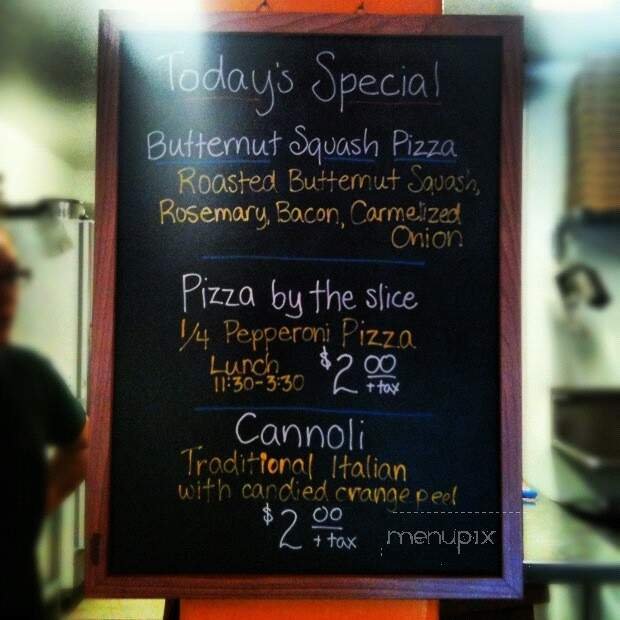 Today's Special
Butternut Squash Pizza
Roasted Butternut Squash,
Rosemary, Bacon, Carmelized
Onion
Pizza by the slice
1/4 Pepperoni Pizza
Lunch
11:30-3:30
$2.00
+ tax
Cannoli
Traditional Italian
with candied orange peel
$2.00
+ tax
menupix